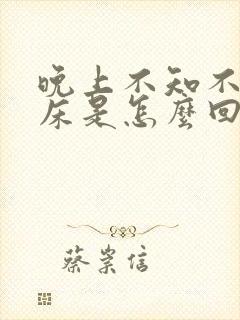 晚上不知不
床是怎麼回
蔡崇信